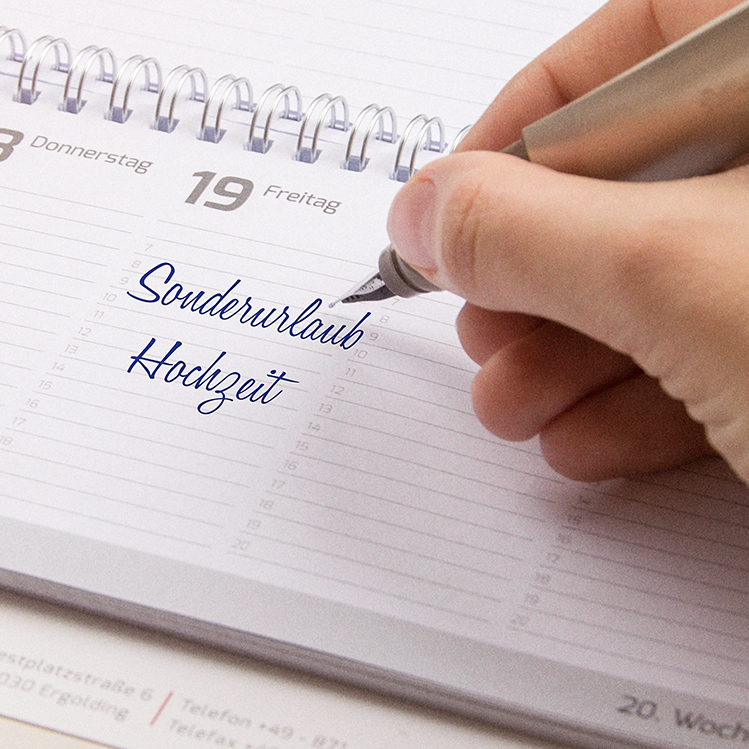 Donnerstag
19 Freitag
Sonderurlaub
Hochzeit
7
8
9
10
11
12
13
14
15
16
17
18
8
9
10
11
12
13
14
15
16
17
18
19
20
16
17
18
19
20
20. Woch
estplatzstraße 6
030 Ergolding
Telefon +49 - 871
Telefax